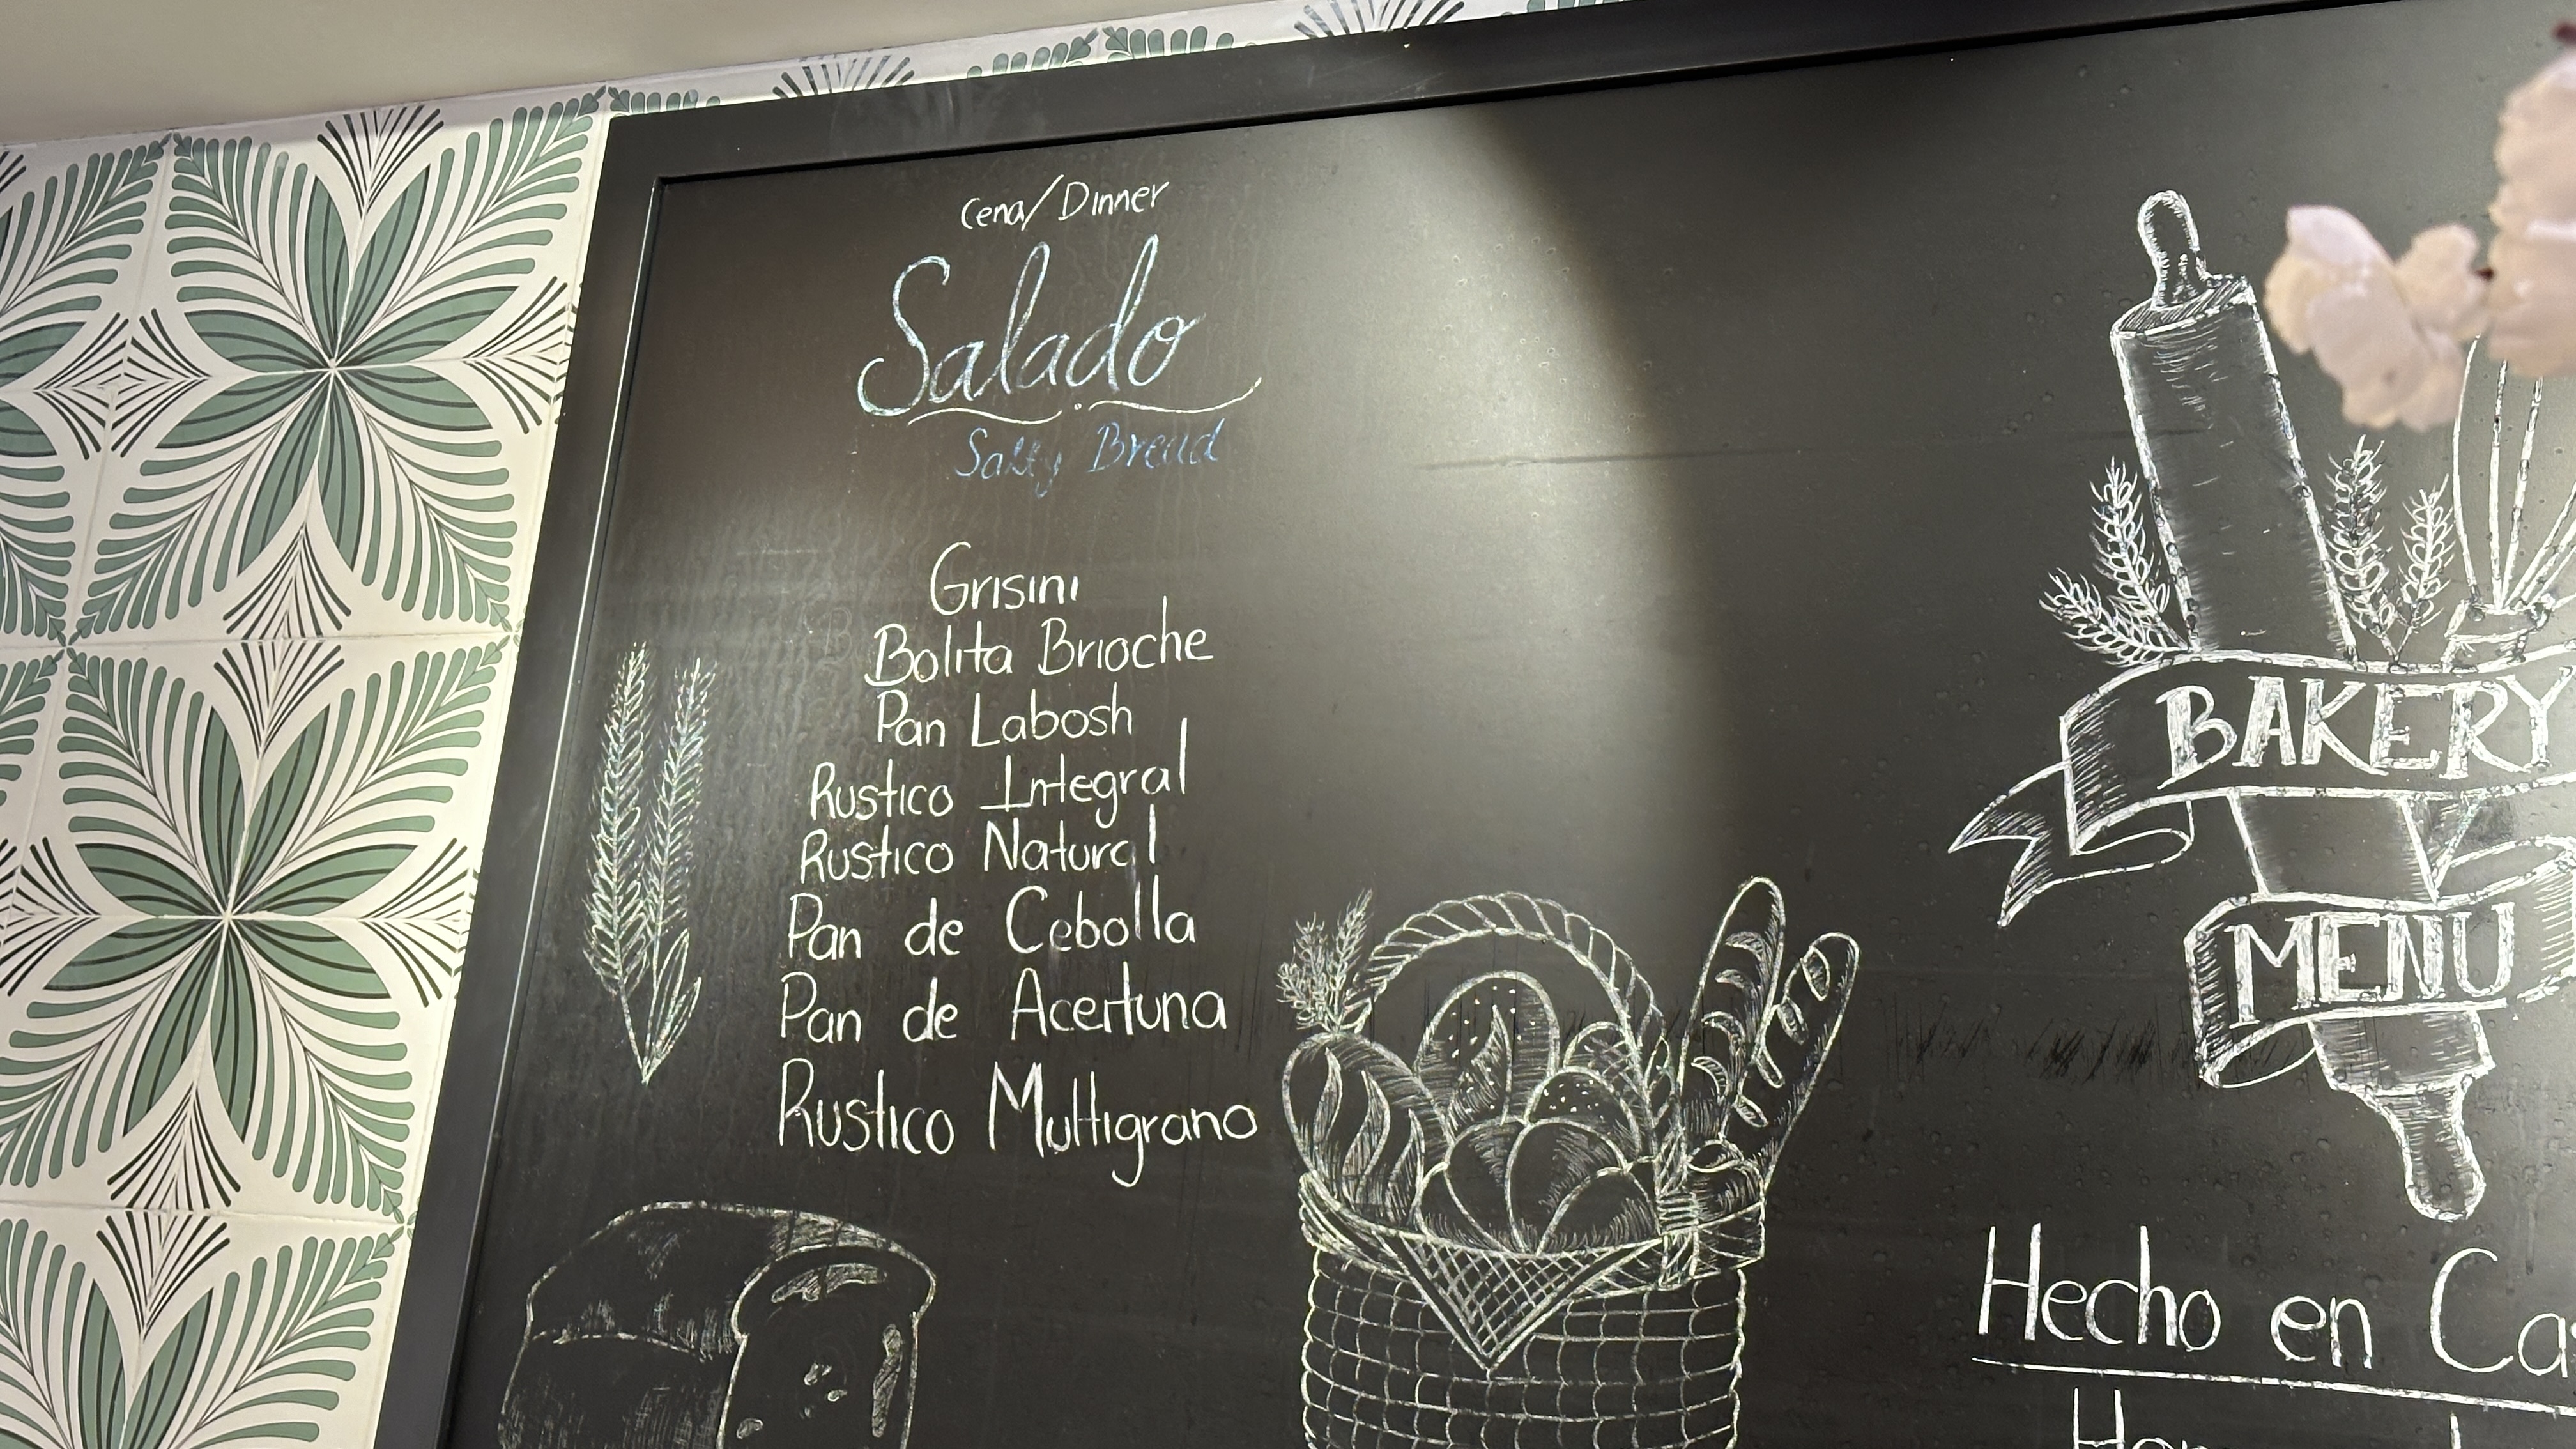 Cena/Dinner
Salado
Salty Bread
Grisini
Bolita Brioche
Pan Labosh
Rustico Integral
Rustico Natural
Pan de Cebolla
Pan de Aceituna
Rustico Multigrano
BAKERY
MENU
Hecho en